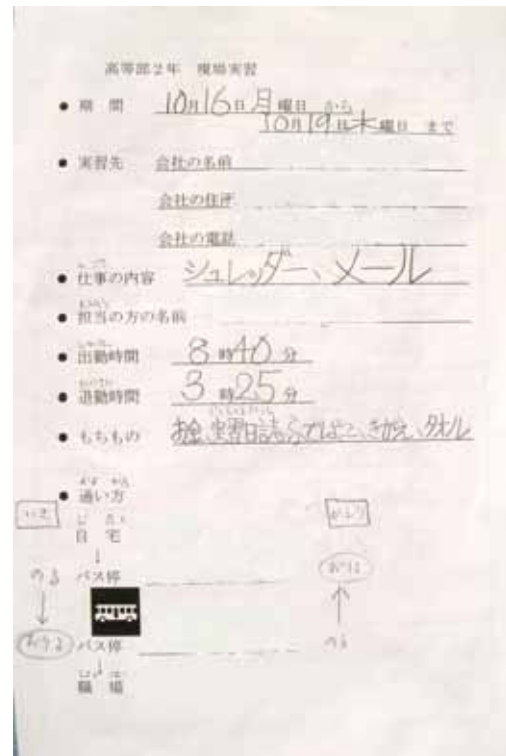 高等部2年 現場実習
● 期間 10月16日月曜日 から
10月19日木曜日 まで
● 実習先 会社の名前
会社の住所
会社の電話
● 仕事の内容 シュレッダー、メール
● 担当の方の名前
● 出勤時間 8時40分
● 退勤時間 3時25分
● もちもの お金、実習日誌、ふでばこ、きがえ、タオル
● 通い方
いき かえり
自宅
↓
のる バス停 おりる
↓ ↑
おりる バス停 のる
↓
職場